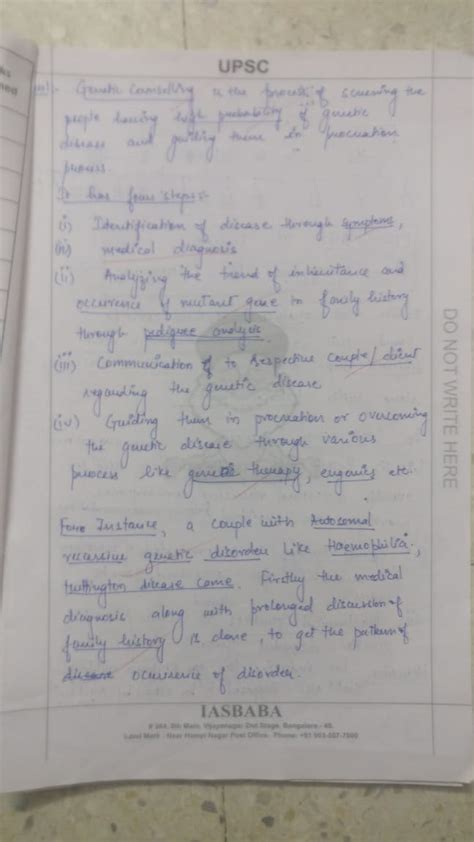 UPSC
Genetic Counselling is the process of screening the
people having high probability of genetic
disease and guiding them in procreation
process.
It has four steps:-
(i) Identification of disease through symptoms,
(ii) medical diagnosis
(ii) Analyzing the trend of inheritance and
occurrence of mutant gene in family history
through pedigree analysis.
(iii) Communication to respective couple/client
regarding the genetic disease
(iv) Guiding them in procreation or overcoming
the genetic disease through various
process like genetic therapy, eugenics etc.
Fore Instance, a couple with Autosomal
recessive genetic disorder like Haemophilia,
Huttington disease come. Firstly the medical
diagnosis along with prolonged discussion of
family history is done, to get the pattern of
disease occurrence of disorder.
IASBABA
# 364, 5th Main, Vijayanagar 2nd Stage, Bangalore - 40.
Land Mark : Near Hampi Nagar Post Office. Phone: +91
DO NOT WRITE HERE